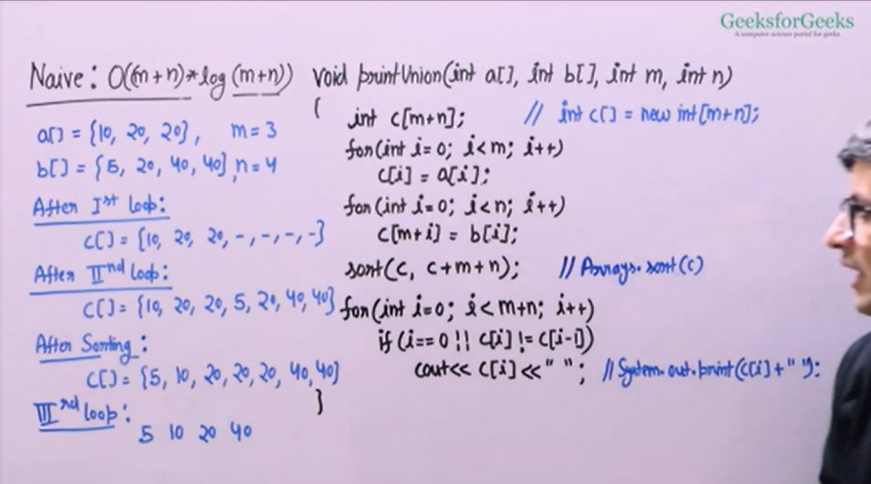 GeeksforGeeks
A computer science portal for geeks
Naive: O((m+n)*log(m+n))
a[] = {10, 20, 20}, m=3
b[] = {5, 20, 40, 40}, n=4
After Ist loop:
c[] = {10, 20, 20, -, -, -, -}
After IInd loop:
c[] = {10, 20, 20, 5, 20, 40, 40}
After Sorting:
c[] = {5, 10, 20, 20, 20, 40, 40}
IIIrd loop:
5 10 20 40
void printUnion(int a[], int b[], int m, int n)
{
int c[m+n]; // int c[] = new int[m+n];
for(int i=0; i<m; i++)
c[i] = a[i];
for(int i=0; i<n; i++)
c[m+i] = b[i];
sort(c, c+m+n); // Arrays.sort(c)
for(int i=0; i<m+n; i++)
if(i==0 || c[i] != c[i-1])
cout<< c[i]<<" "; // System.out.print(c[i]+" ");
}